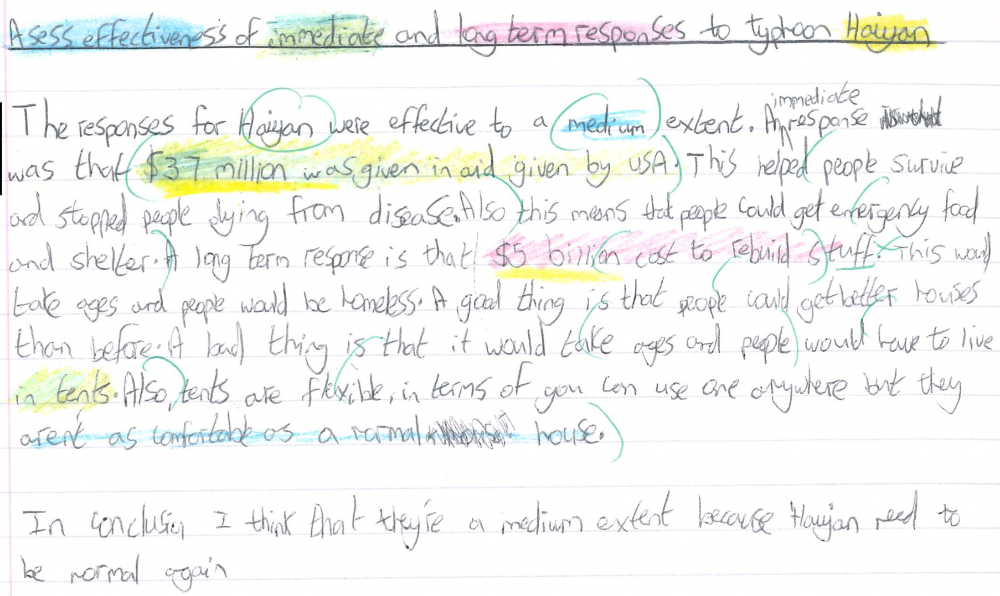 Asess effectiveness of immediate and long term responses to typhoon Haiyan
The responses for Haiyan were effective to a medium extent. An immediate response
was that $37 million was given in aid given by USA. This helped people survive
and stopped people dying from disease. Also this means that people could get emergency food
and shelter. A long term response is that $5 billion cost to rebuild stuff. This would
take ages and people would be homeless. A good thing is that people could get better houses
than before. A bad thing is that it would take ages and people would have to live
in tents. Also, tents are flexible, in terms of you can use one anywhere but they
arent as comfortable as a normal house.
In conclusion I think that they're a medium extent because Haiyan need to
be normal again